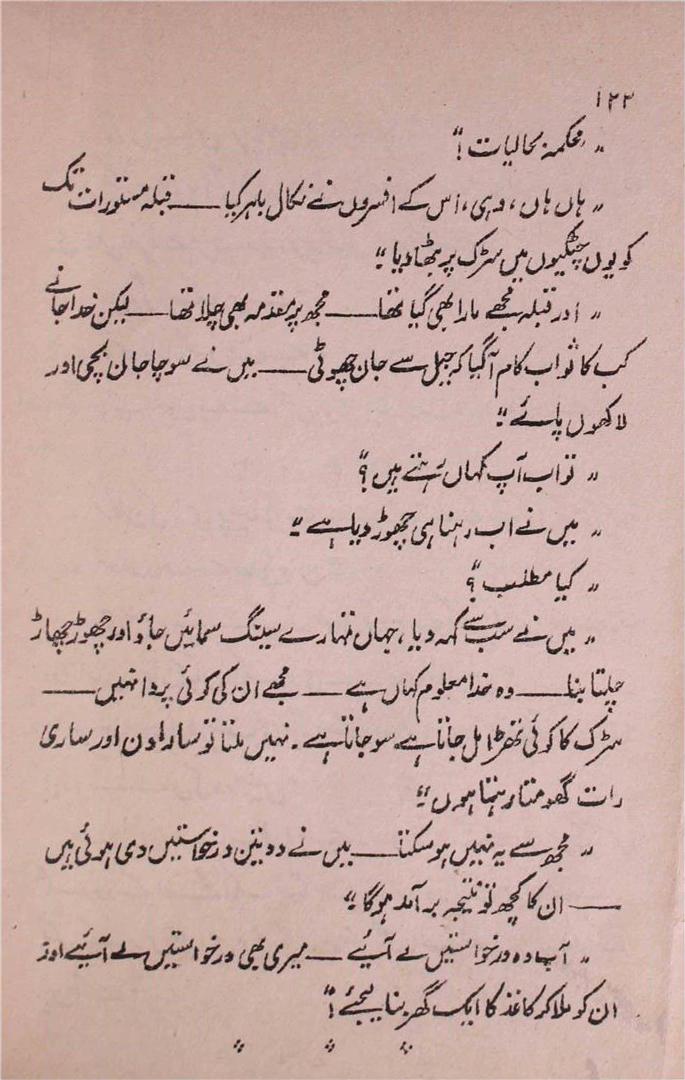 ۱۲۲
”محکمۂ بحالیات!“
”ہاں ہاں، وہی، اس کے افسروں نے نکال باہر کیا —— قبلہ مستورات تک
کو یوں چٹکیوں میں سڑک پر بٹھا دیا۔“
”اور قبلہ مجھے مارا بھی گیا تھا —— مجھ پر مقدمہ بھی چلا تھا —— لیکن خدا جانے
کب کا ثواب کام آگیا کہ جیل سے جان چھوٹی —— میں نے سوچا جان بچی اور
لاکھوں پائے۔“
”تو اب آپ کہاں رہتے ہیں؟“
”میں نے اب رہنا ہی چھوڑ دیا ہے۔“
”کیا مطلب؟“
”میں نے سب سے کہہ دیا، جہاں تمہارے سینگ سمائیں جاؤ اور چھوڑ چھاڑ
چلتا بنا —— وہ خدا معلوم کہاں ہے —— مجھے ان کی کوئی پروا نہیں ——
سڑک کا کوئی تھڑا مل جاتا ہے سو جاتا ہے۔ نہیں ملتا تو سارا دن اور ساری
رات گھومتا رہتا ہوں۔“
”مجھ سے یہ نہیں ہوسکتا —— میں نے دو تین درخواستیں دی ہوئی ہیں
—— ان کا کچھ تو نتیجہ برآمد ہوگا۔“
”آپ وہ درخواستیں لے آئیے —— میری بھی درخواستیں لے آئیے اور
ان کو ملا کر کاغذ کا ایک گھر بنا لیجئے!“